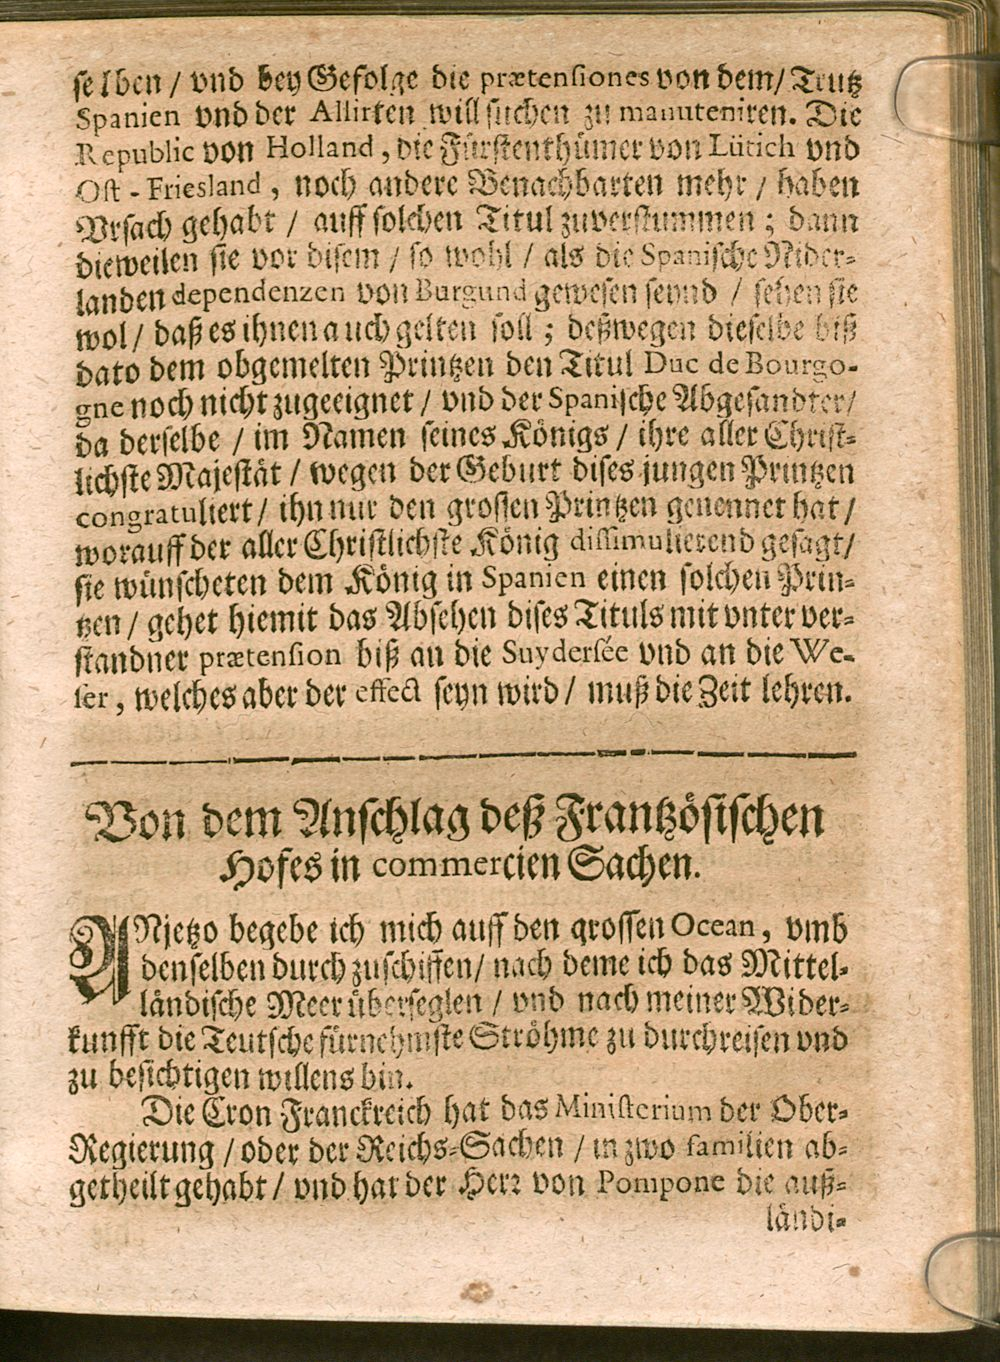 selben / vnd bey Gefolge die prætensiones von dem / Trutz
Spanien vnd der Allirten will suchen zu manuteniren. Die
Republic von Holland, die Fürstenthümer von Lütich vnd
Ost-Friesland, noch andere Benachbarten mehr / haben
Vrsach gehabt / auff solchen Titul zuverstummen; dann
dieweilen sie vor disem / so wohl / als die Spanische Nider-
landen dependenzen von Burgund gewesen seynd / sehen sie
wol / daß es ihnen auch gelten soll; deßwegen dieselbe biß
dato dem obgemelten Printzen den Titul Duc de Bourgo-
gne noch nicht zugeeignet / vnd der Spanische Abgesandter /
da derselbe / im Namen seines Königs / ihre aller Christ-
lichste Majestät / wegen der Geburt dises jungen Printzen
congratuliert / ihn nur den grossen Printzen genennet hat /
worauff der aller Christlichste König dissimulierend gesagt /
sie wünscheten dem König in Spanien einen solchen Prin-
tzen / gehet hiemit das Absehen dises Tituls mit vnter ver-
standner prætension biß an die Suydersée vnd an die We-
ser, welches aber der effect seyn wird / muß die Zeit lehren.
Von dem Anschlag deß Frantzösischen
Hofes in commercien Sachen.
ANjetzo begebe ich mich auff den grossen Ocean, vmb
denselben durch zuschiffen / nach deme ich das Mittel-
ländische Meer überseglen / vnd nach meiner Wider-
kunfft die Teutsche fürnehmste Ströhme zu durchreisen vnd
zu besichtigen willens bin.
Die Cron Franckreich hat das Ministerium der Ober-
Regierung / oder der Reichs-Sachen / in zwo familien ab-
getheilt gehabt / vnd hat der Herr von Pompone die auß-
ländi-